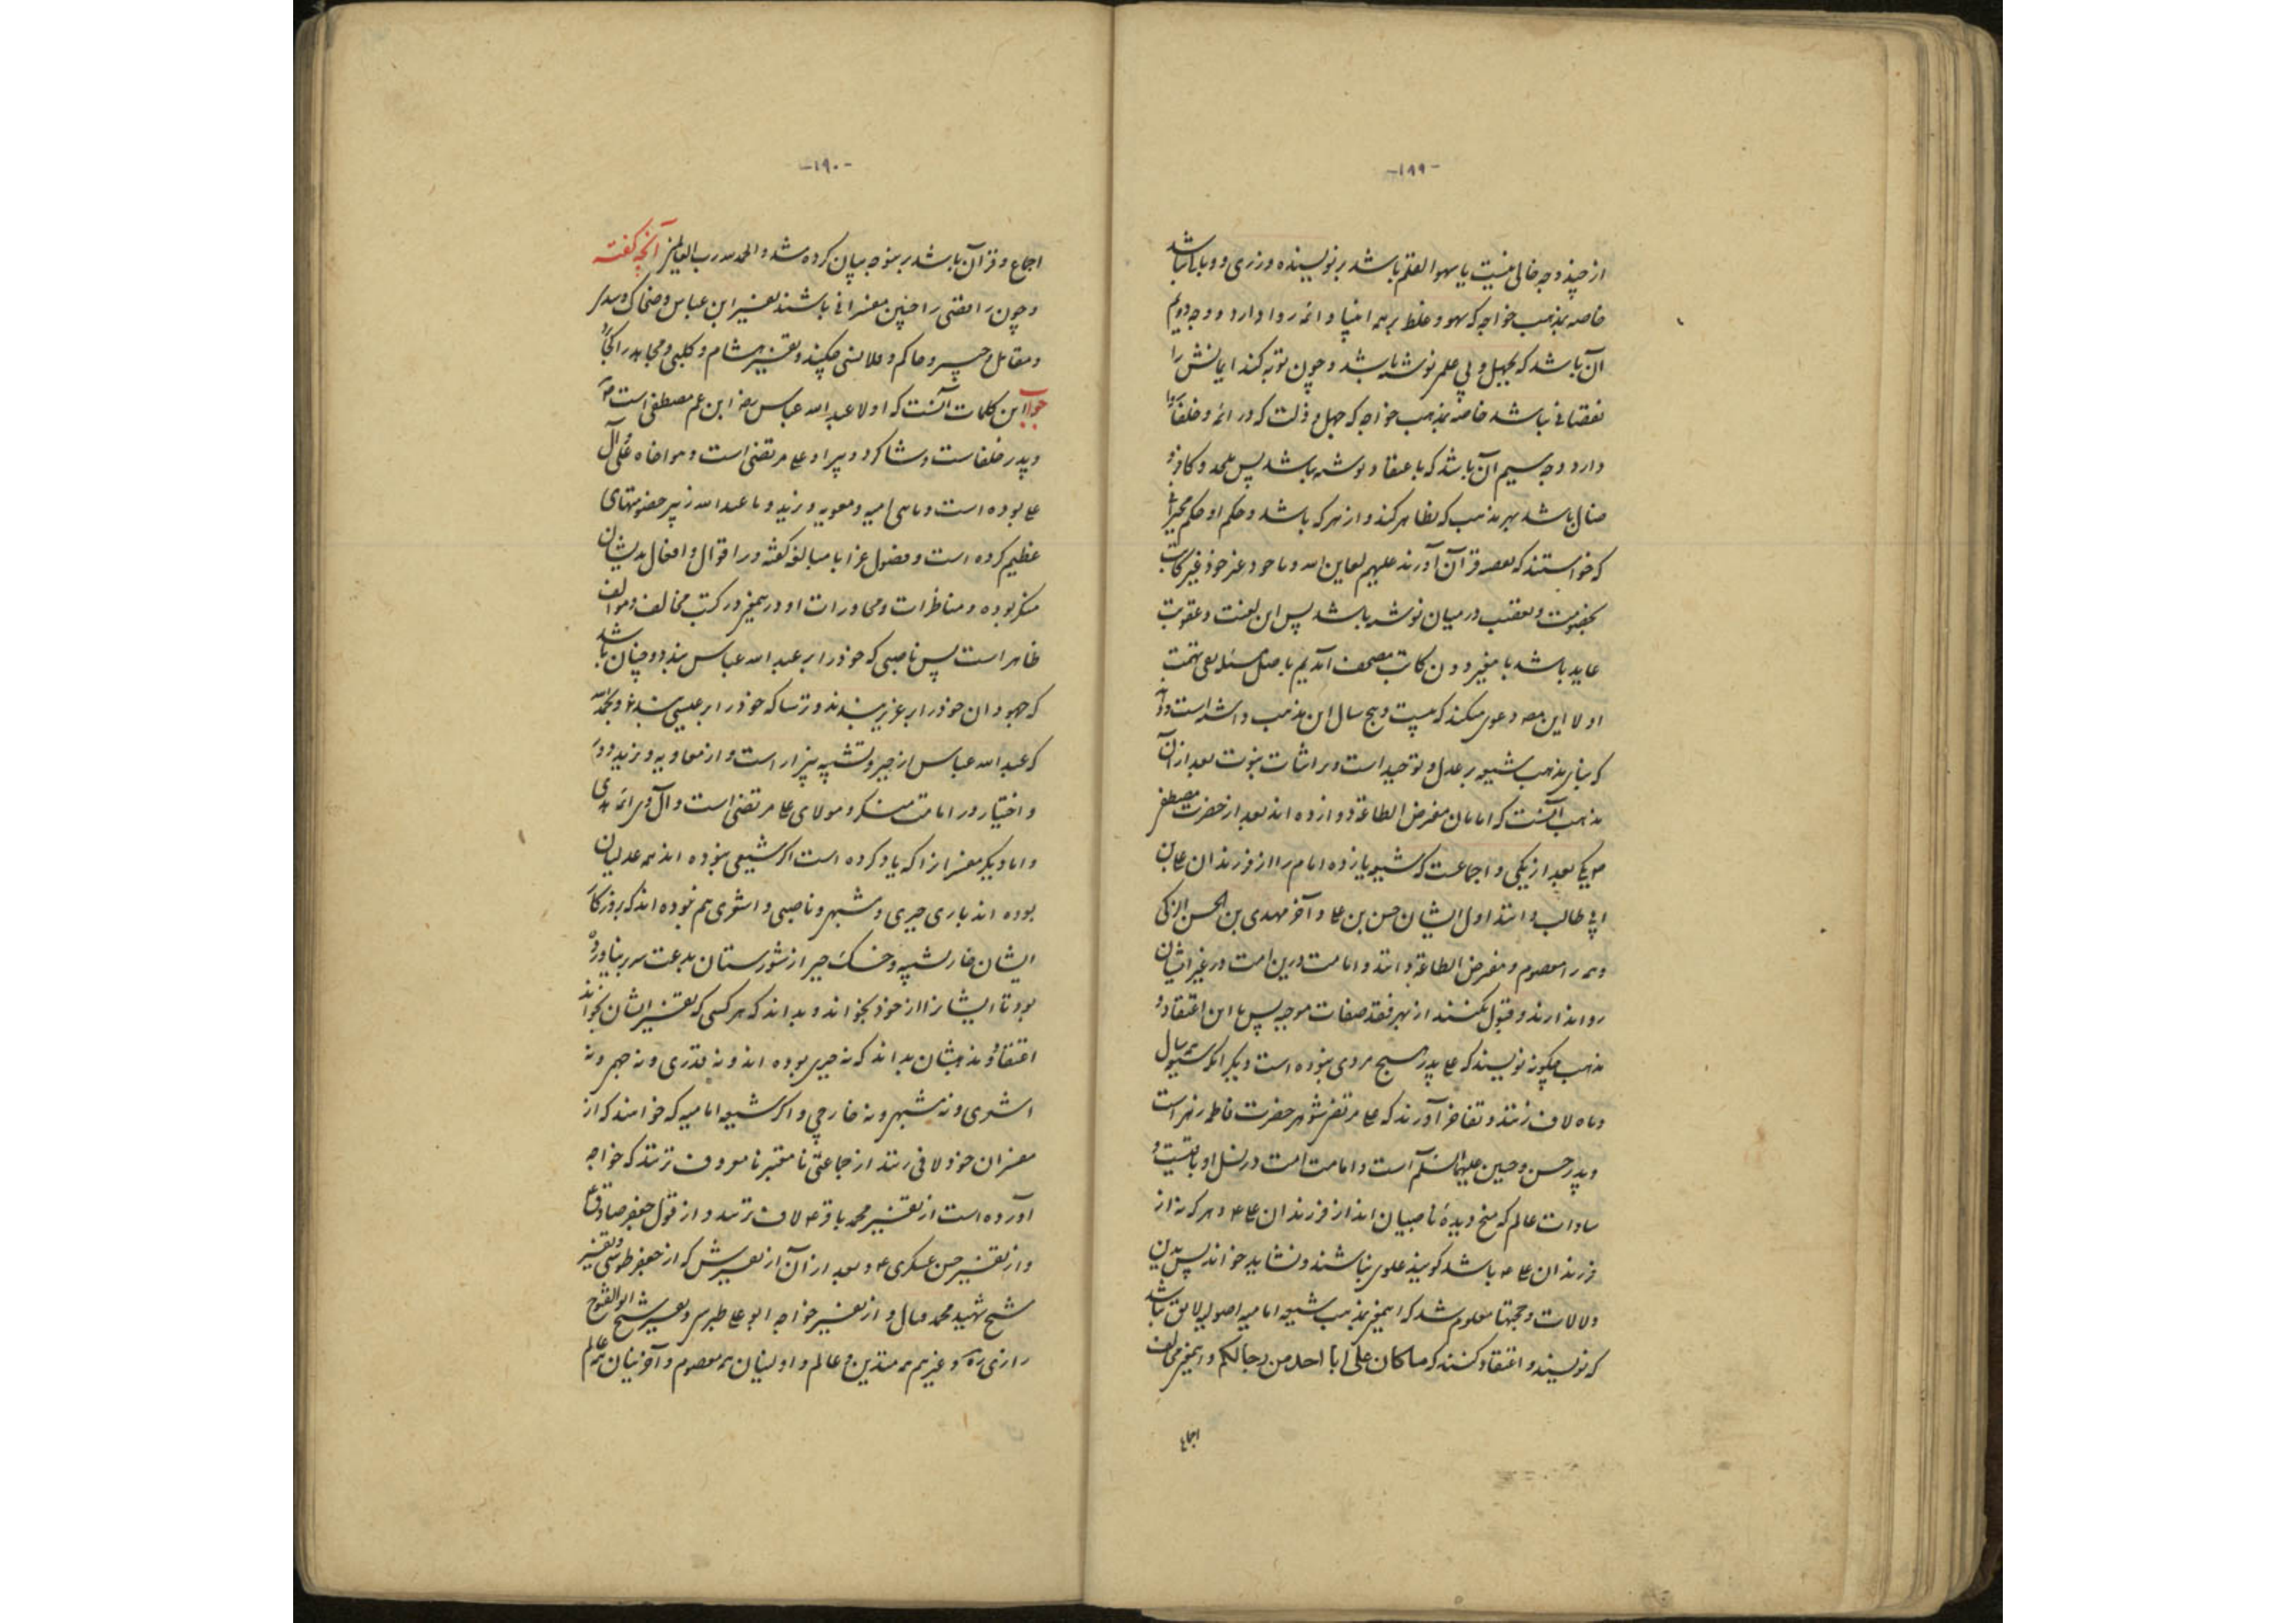 -۱۸۹-
از چند وجه خالی نیست یا سهو القلم باشد بر نویسنده وزری و وبالی نباشد
خاصه بمذهب خواجه که سهو و غلط بر همه انبیا و ائمه روا دارد و وجه دویم
آن باشد که بجهل و بی علم نوشته باشد و چون توبه کند ایمانش را
نقصانی نباشد خاصه بمذهب خواجه که جهل و ذلت که در ائمه و خلفا روا
دارد وجه سیم آن باشد که باعتقاد نوشته باشد پس ملحد و کافر و
ضال باشد بهر مذهب که تظاهر کند و از هر که باشد و حکم او حکم
که خواستند که نقص قرآن آورند علیهم لعاین الله و یا خود غیر کاتب
بخصومت و تعصب در میان نوشته باشد پس این لعنت و عقوبت
عاید باشد با مغیر دون کاتب مصحف آمدیم با اصل مسئله نفی تهمت
اولا این دعوی میکند که بیست و پنج سال این مذهب داشته است
که بنای مذهب شیعه بر عدل و توحید است و بر اثبات نبوت بعد از آن
مذهب آنست که امامان مفرض الطاعة دوازده اند بعد از حضرت مصطفی
یکی بعد از یکی و اجماعست که شیعه یازده امام را از فرزندان علی بن
ابی طالب دانند اول ایشان حسن بن علی و آخر مهدی بن الحسن الزکی
و همه را معصوم و مفرض الطاعة دانند و امامت درین امت در غیر ایشان
روا ندارند و قبول نکنند از بهر فقد صفات موجبه پس با این اعتقاد و
مذهب چگونه نویسند که علی پدر هیچ مردی نبوده است دیگر آنکه شیعه همه سال
و ماه لاف زنند و تفاخر آورند که علی مرتضی شوهر حضرت فاطمه زهراست
و پدر حسن و حسین علیهما السلام است و امامت امت در نسل او باقیست و
سادات عالم که میخ دیدهٔ ناصبیان اند از فرزندان علی ع و هر که نه از
فرزندان علی ع باشد گویند علوی نباشند و نشاید خواند پس بدین
دلالات و حجتها معلوم شد که اینمعنی بمذهب شیعه امامیه اصولیه لایق نباشد
که نویسند و اعتقاد کنند که ماکان علی ابا احد من رجالکم و اینمعنی مخالف
اجماع
-۱۹۰-
اجماع و قرآن باشد برینوجه بیان کرده شد و الحمد لله رب العالمین آنچه گفته
و چون رافضی را چنین مفسرانی باشند تفسیر ابن عباس و ضحاک و سدی
و مقاتل و و حاکم و چکنند و تفسیر هشام و کلبی و مجاهد را کجا
جواب این کلمات آنست که اولا عبد الله عباس رض ابن عم مصطفی است ص
و پدر خلفاست و شاگرد و پیرو علی مرتضی است و هواخواه علی و آل
علی بوده است و با بنی امیه و معویه و یزید و با عبد الله زبیر خصومتهای
عظیم کرده است و فصول غرا با مبالغه گفته و در اقوال و افعال بدیشان
منکر بوده و مناظرات و محاورات او درینمعنی در کتب مخالف و موالف
ظاهر است پس ناصبی که خود را بر عبد الله عباس بندد و چنان باشد
که جهودان خود را بر عزیر بندند و ترسا که خود را بر عیسی بندد و بحمد الله
که عبد الله عباس از جبر و تشبیه بیزار است و از معاویه و یزید دور
و اختیار در امامت منکر و مولای علی مرتضی است و آل وی ائمه هدی
و اما دیگر مفسرانرا که یاد کرده است اگر شیعی نبوده اند همه عدلیان
بوده اند باری جبری و مشبهی و ناصبی و اشعری هم نبوده اند که بروزگار
ایشان خار تشبیه و خسک جبر از شورستان بدعت سر بر نیاورده
بود تا ایشانرا از خود بخواند و بداند که هر کسی که تفسیر ایشان بخواند
اعتقاد و مذهبشان بداند که نه جبری بوده اند و نه قدری و نه جهمی و نه
اشعری و نه مشبهی و نه خارجی و اگر شیعه امامیه که خواهند که از
مفسران خود لافی زنند از جماعتی نامعتبر نامعروف نزنند که خواجه
آورده است از تفسیر محمد باقر ع لاف زنند و از قول جعفر صادق ع
و از تفسیر حسن عسکری ع و بعد از آن از تفسیرش که ابو جعفر طوسی و تفسیر
شیخ شهید محمد فتال و از تفسیر خواجه ابو علی طبرسی و تفسیر شیخ ابو الفتوح
رازی ره و غیرهم همه متدین و عالم و اولینان همه معصوم و آخرینان همه عالم